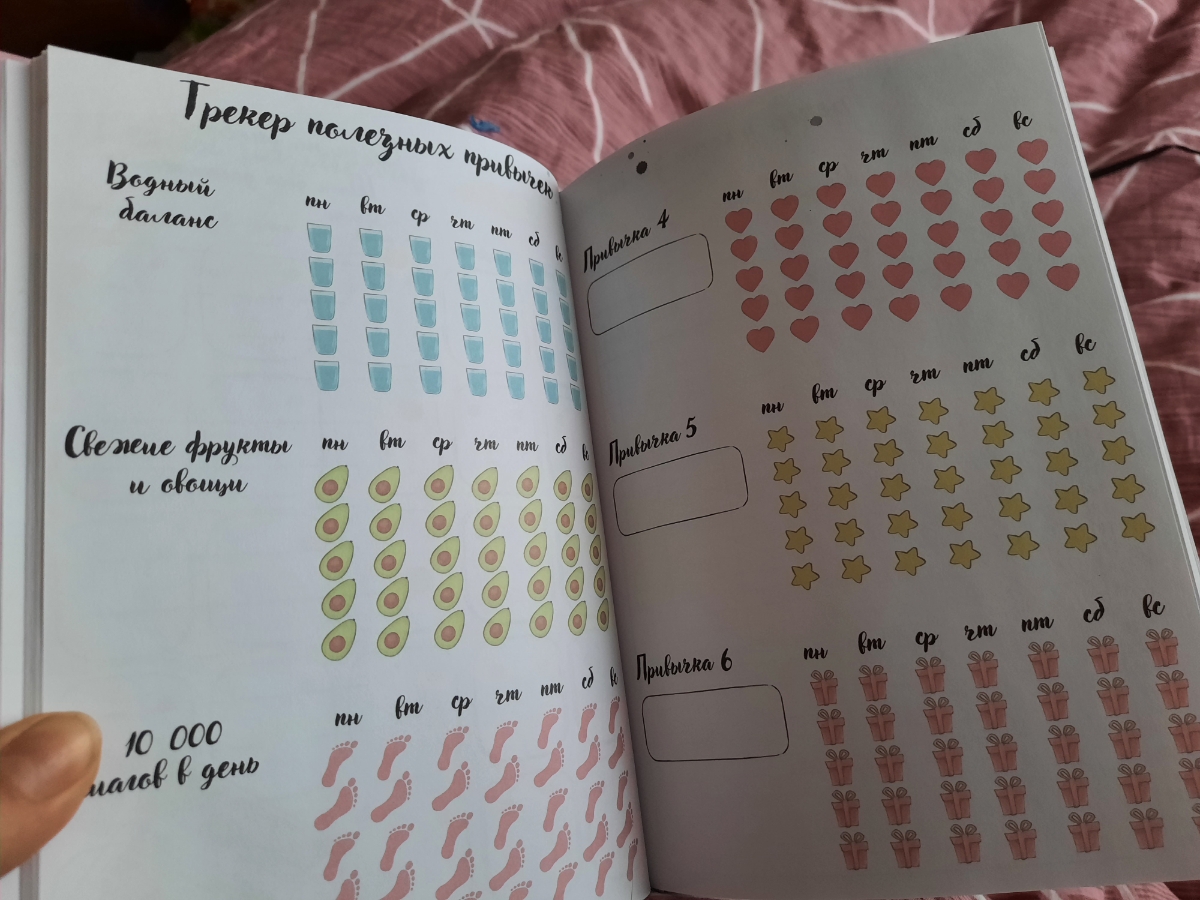 Трекер полезных привычек
Водный
баланс
пн вт ср чт пт сб вс
Свежие фрукты
и овощи
пн вт ср чт пт сб вс
10 000
шагов в день
пн вт ср чт пт сб вс
Привычка 4
пн вт ср чт пт сб вс
Привычка 5
пн вт ср чт пт сб вс
Привычка 6
пн вт ср чт пт сб вс